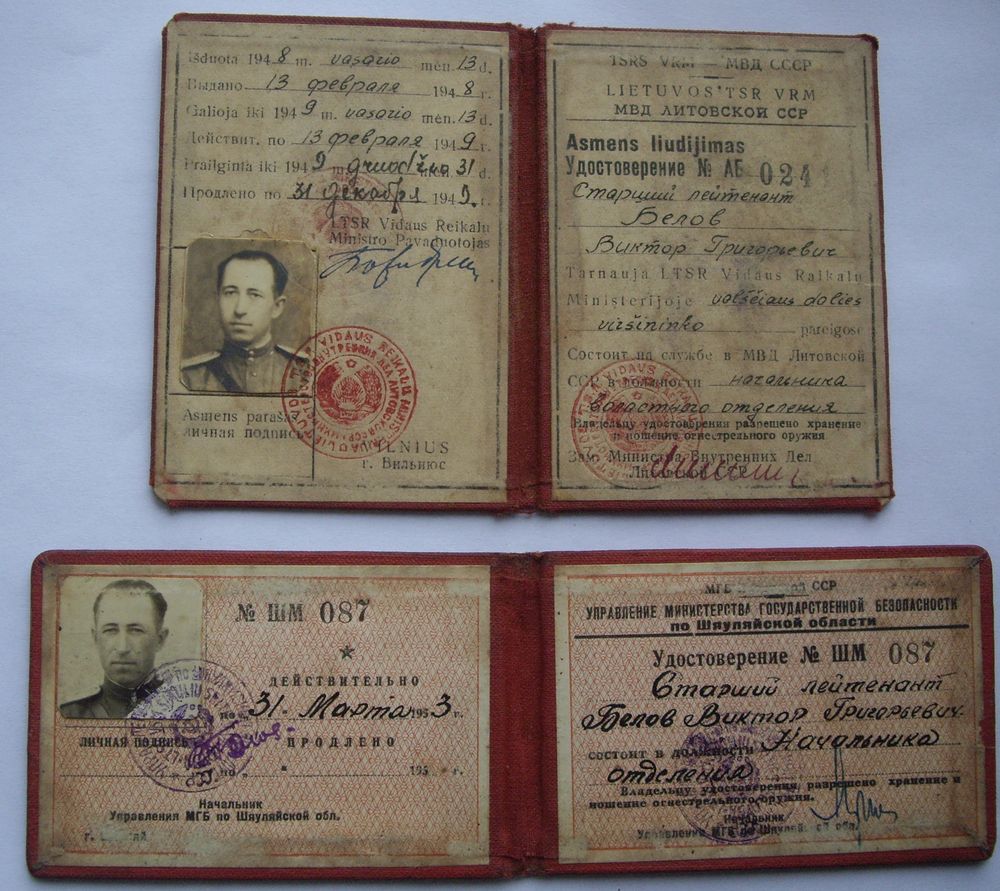 Išduota 1948 m. vasario mėn. 13 d.
Выдано 13 февраля 1948 г.
Galioja iki 1949 m. vasario mėn. 13 d.
Действит. по 13 февраля 1949 г.
Prailginta iki 1949 m. gruodžio 31 d.
Продлено по 31 декабря 1949 г.
LTSR Vidaus Reikalų
Ministro Pavaduotojas
Asmens parašas
личная подпись
VILNIUS
г. Вильнюс
TSRS VRM — МВД СССР
LIETUVOS TSR VRM
МВД ЛИТОВСКОЙ ССР
Asmens liudijimas
Удостоверение № АБ 024
Старший лейтенант
Белов
Виктор Григорьевич
Tarnauja LTSR Vidaus Raikalų
Ministerijoje valsčiaus dalies
viršininko pareigose
Состоит на службе в МВД Литовской
ССР в должности начальника
волостного отделения
Владельцу удостоверения разрешено хранение
и ношение огнестрельного оружия
Зам. Министра Внутренних Дел
Литовской ССР
№ ШМ 087
ДЕЙСТВИТЕЛЬНО
по „31” Марта 1953 г.
ЛИЧНАЯ ПОДПИСЬ
ПРОДЛЕНО
по „ “ 195 г.
Начальник
Управления МГБ по Шяуляйской обл.
МГБ ССР
УПРАВЛЕНИЕ МИНИСТЕРСТВА ГОСУДАРСТВЕННОЙ БЕЗОПАСНОСТИ
по Шяуляйской области
Удостоверение № ШМ 087
Старший лейтенант
Белов Виктор Григорьевич
состоит в должности Начальника
отделения
Владельцу удостоверения разрешено хранение и
ношение огнестрельного оружия.
Начальник
Управления МГБ по Шяуляйской обл.